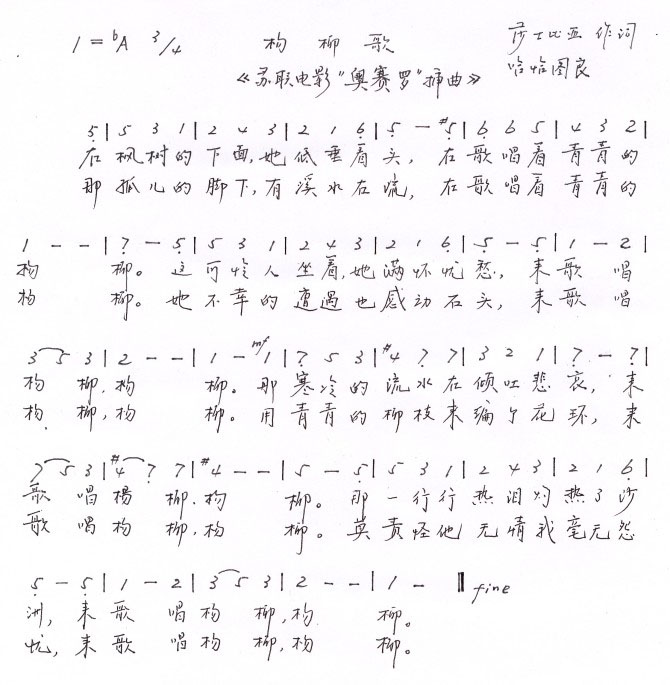 1=ᵇA 3/4 杨柳歌 莎士比亚 作词
《苏联电影"奥赛罗"插曲》 哈恰图良
5̣ | 5 3 1 | 2 4 3 | 2 1 6̣ | 5̣ – #5̣ | 6̣ 6 5 | 4 3 2 |
在枫树的下面,她低垂着头, 在歌唱着青青的
那孤儿的脚下,有溪水在流, 在歌唱着青青的
1 – – | 7̣ – 5̣ | 5 3 1 | 2 4 3 | 2 1 6̣ | 5̣ – 5̣ | 1 – 2 |
杨 柳。 这可怜人坐着,她满怀忧愁, 来歌 唱
杨 柳。 她不幸的遭遇也感动石头, 来歌 唱
3 5 3 | 2 – – | 1 – mf 1 | 7̣ 5 3 | #4 7̣ 7 | 3 2 1 | 7̣ – 7̣ |
杨 柳,杨 柳。那寒冷的流水在倾吐悲哀, 来
杨 柳,杨 柳。用青青的柳枝来编个花环, 来
7 5 3 | #4 7 7 | #4 – – | 5 – 5̣ | 5 3 1 | 2 4 3 | 2 1 6̣ |
歌唱楊 柳,杨 柳。那一行行热泪灼热了沙
歌唱杨 柳,杨 柳。莫责怪他无情我毫无怨
5̣ – 5̣ | 1 – 2 | 3 5 3 | 2 – – | 1 – ‖ fine
洲, 来歌 唱杨 柳,杨 柳。
忧, 来歌 唱杨 柳,杨 柳。